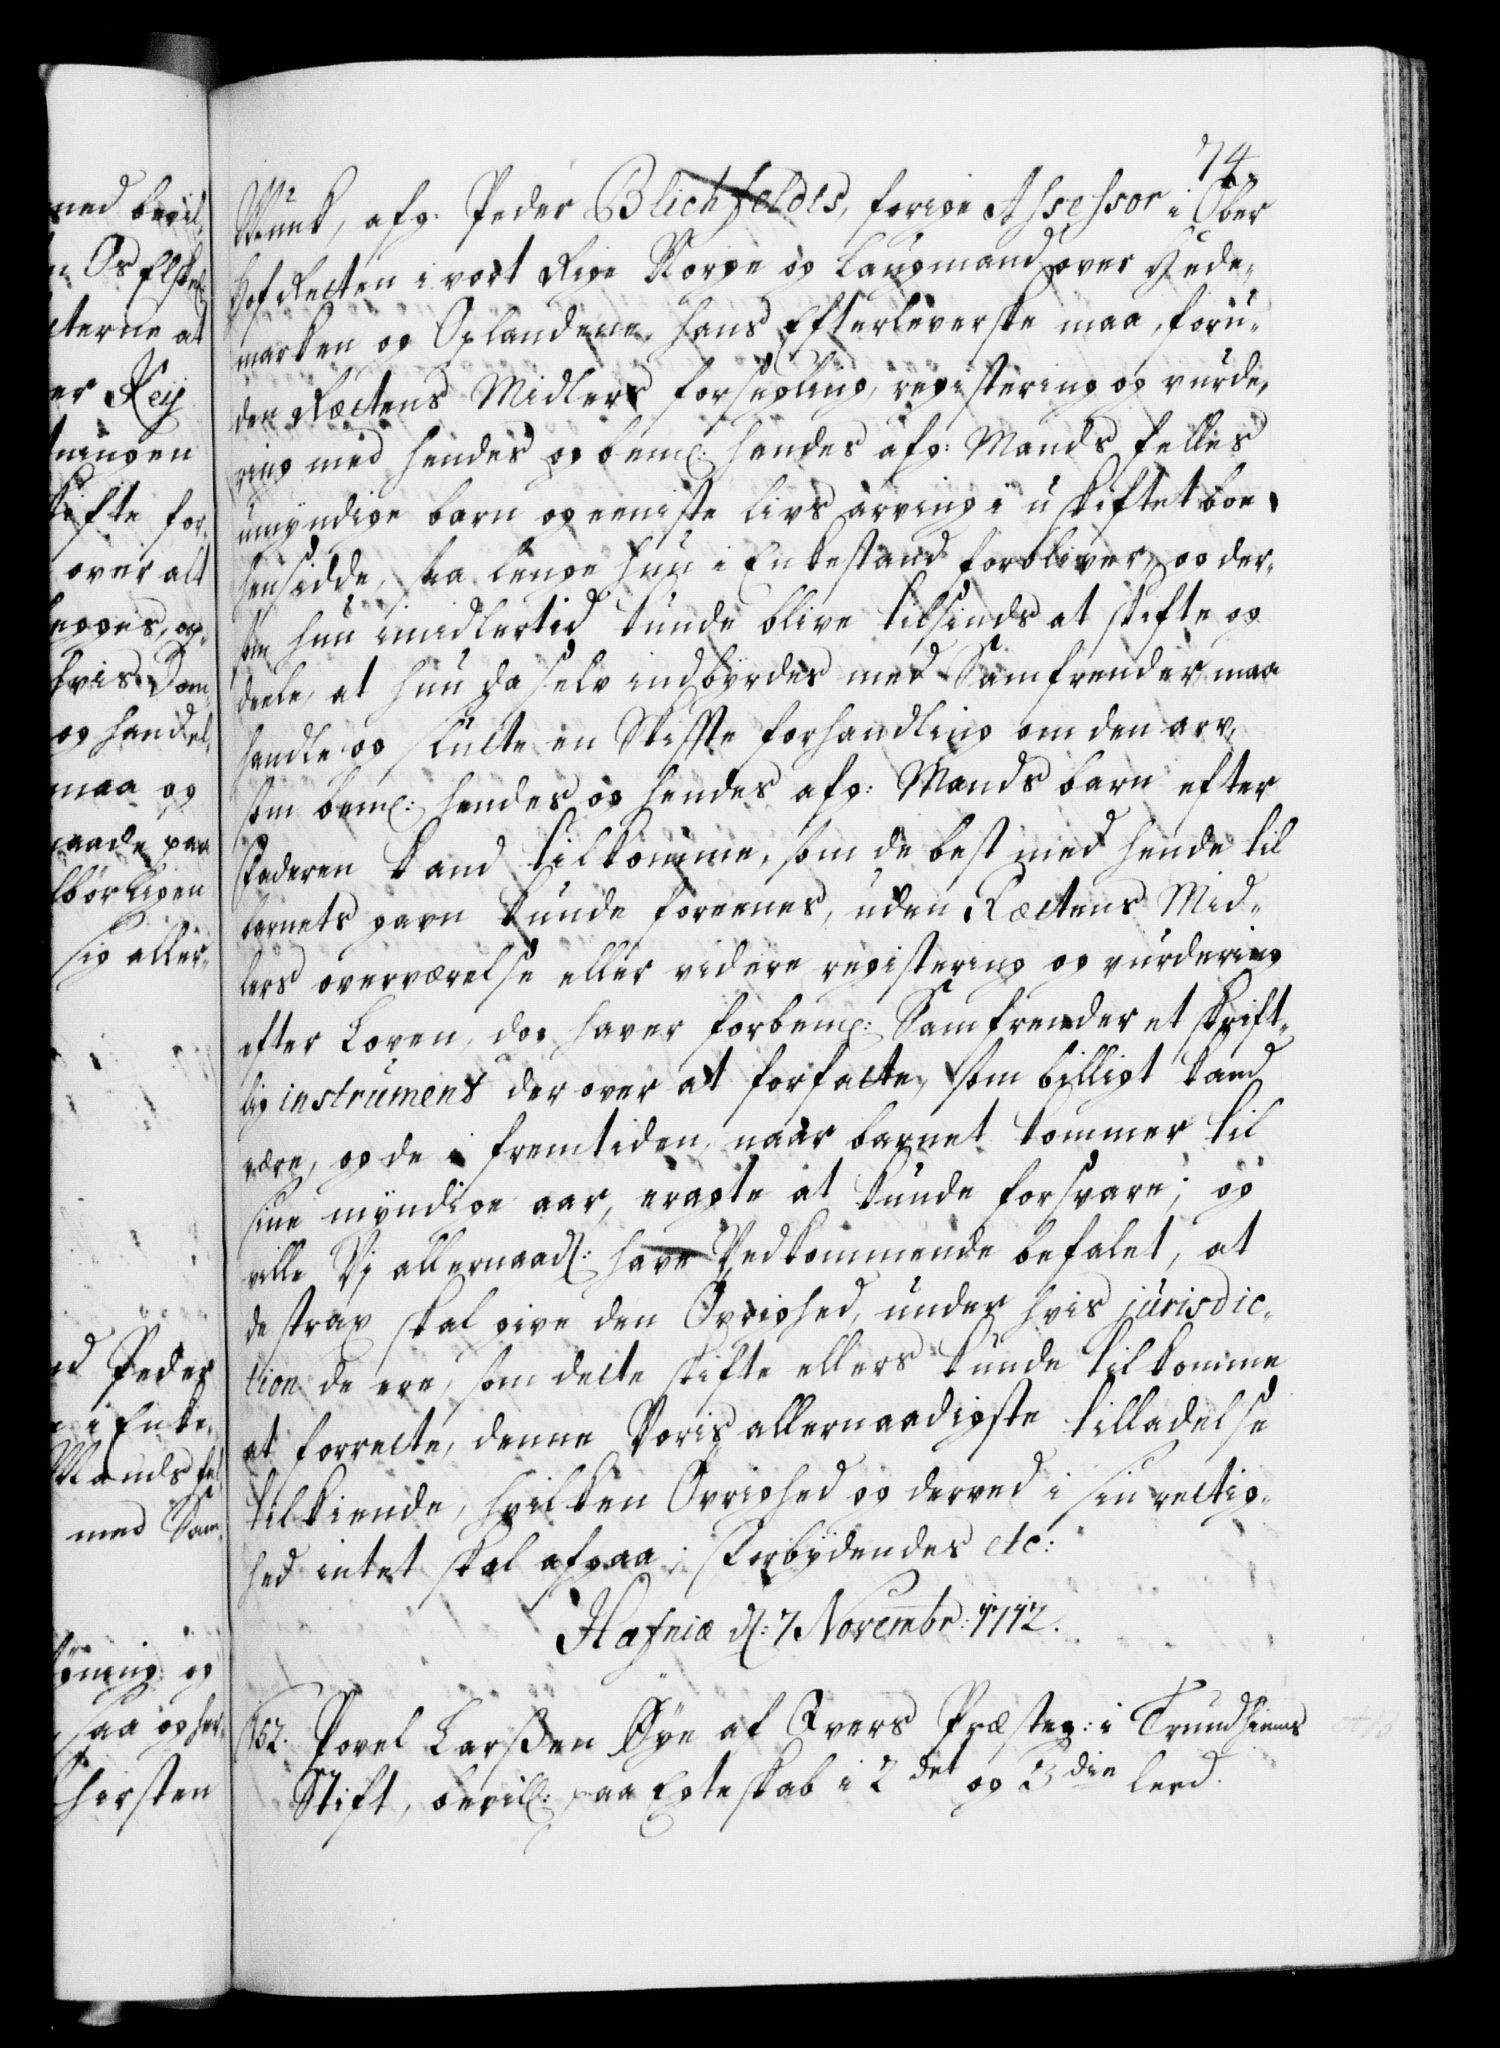 74.
Munk, afg. Peder Blichfeldts, forige Assessor i Ober
Hof Retten i vort Rige Norge og Laugmand over Hede,,
marken og Oplandene, hans Efterleverske maa, foru,,
den Rættens Midlers forsegling, registering og vurde,,
ring med hendes og bemt: hendes afg: Mands felles
umyndige barn og eeniste livs arving i u skiftet boe
hensidde, saa lenge hun i Enkestand forbliver, og der,,
som hun imidlertid kunde blive tilsinds at skifte og
deele, at hun da selv indbyrdes med Samfrender maa
handle og slutte en Skiffte forhandling om den arv,
som bemt: hendes og hendes afg: Mands barn efter
Faderen kand tilkomme, som de best med hende til
barnets gavn kunde foreenes, uden Rættens Mid,,
lers overværelse eller videre registering og vurdering
efter Loven, dog haver forbemt: Samfrender et skrift,,
lig instrument der over at forfatte, som billigt kand
være, og de i fremtiden, naar barnet kommer til
sine myndige aar, eragte at kunde forsvare; og
ville Vj allernaadl: have Vedkommende befalet, at
de strax skal give den Øvrighed, under hvis jurisdic,,
tion de ere, som dette skifte ellers kunde tilkomme
at forrette, denne Voris allernaadigste tilladelse
tilkiende, hvilken Øvrighed og derved i sin rettig,,
hed intet skal afgaa; Forbydendes etc:
Hafniæ d: 7 Novembr: 1712.
152. Povel Larssen Øye af Qvers Præsteg: i Trundhiems
Stift, bevill: paa Egteskab i 2det og 3die leed.